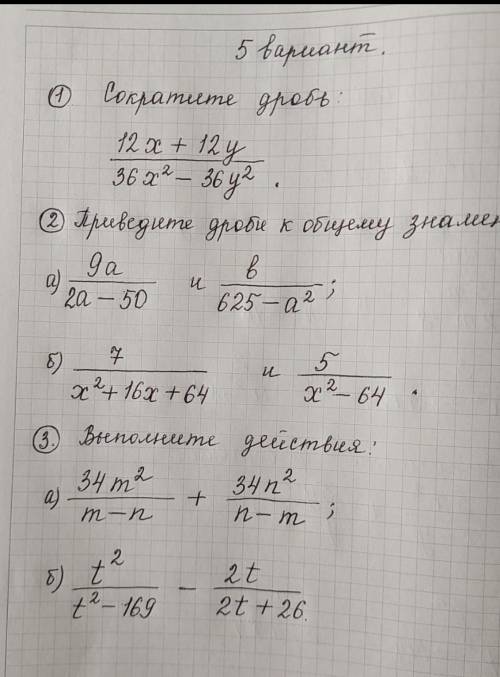 5 вариант.
① Сократите дробь:
12x + 12y / 36x² - 36y² .
② Приведите дроби к общему знамен
а) 9a / 2a - 50 и b / 625 - a² ;
б) 7 / x² + 16x + 64 и 5 / x² - 64 .
③. Выполните действия:
а) 34m² / m - n + 34n² / n - m ;
б) t² / t² - 169 - 2t / 2t + 26.